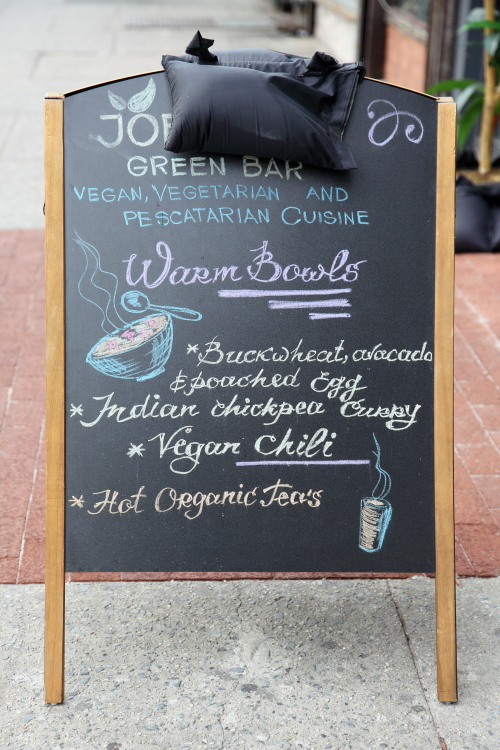 GREEN BAR
VEGAN, VEGETARIAN AND
PESCATARIAN CUISINE
Warm Bowls
*Buckwheat, avocado
& poached Egg
*Indian chickpea Curry
*Vegan Chili
*Hot Organic Tea's